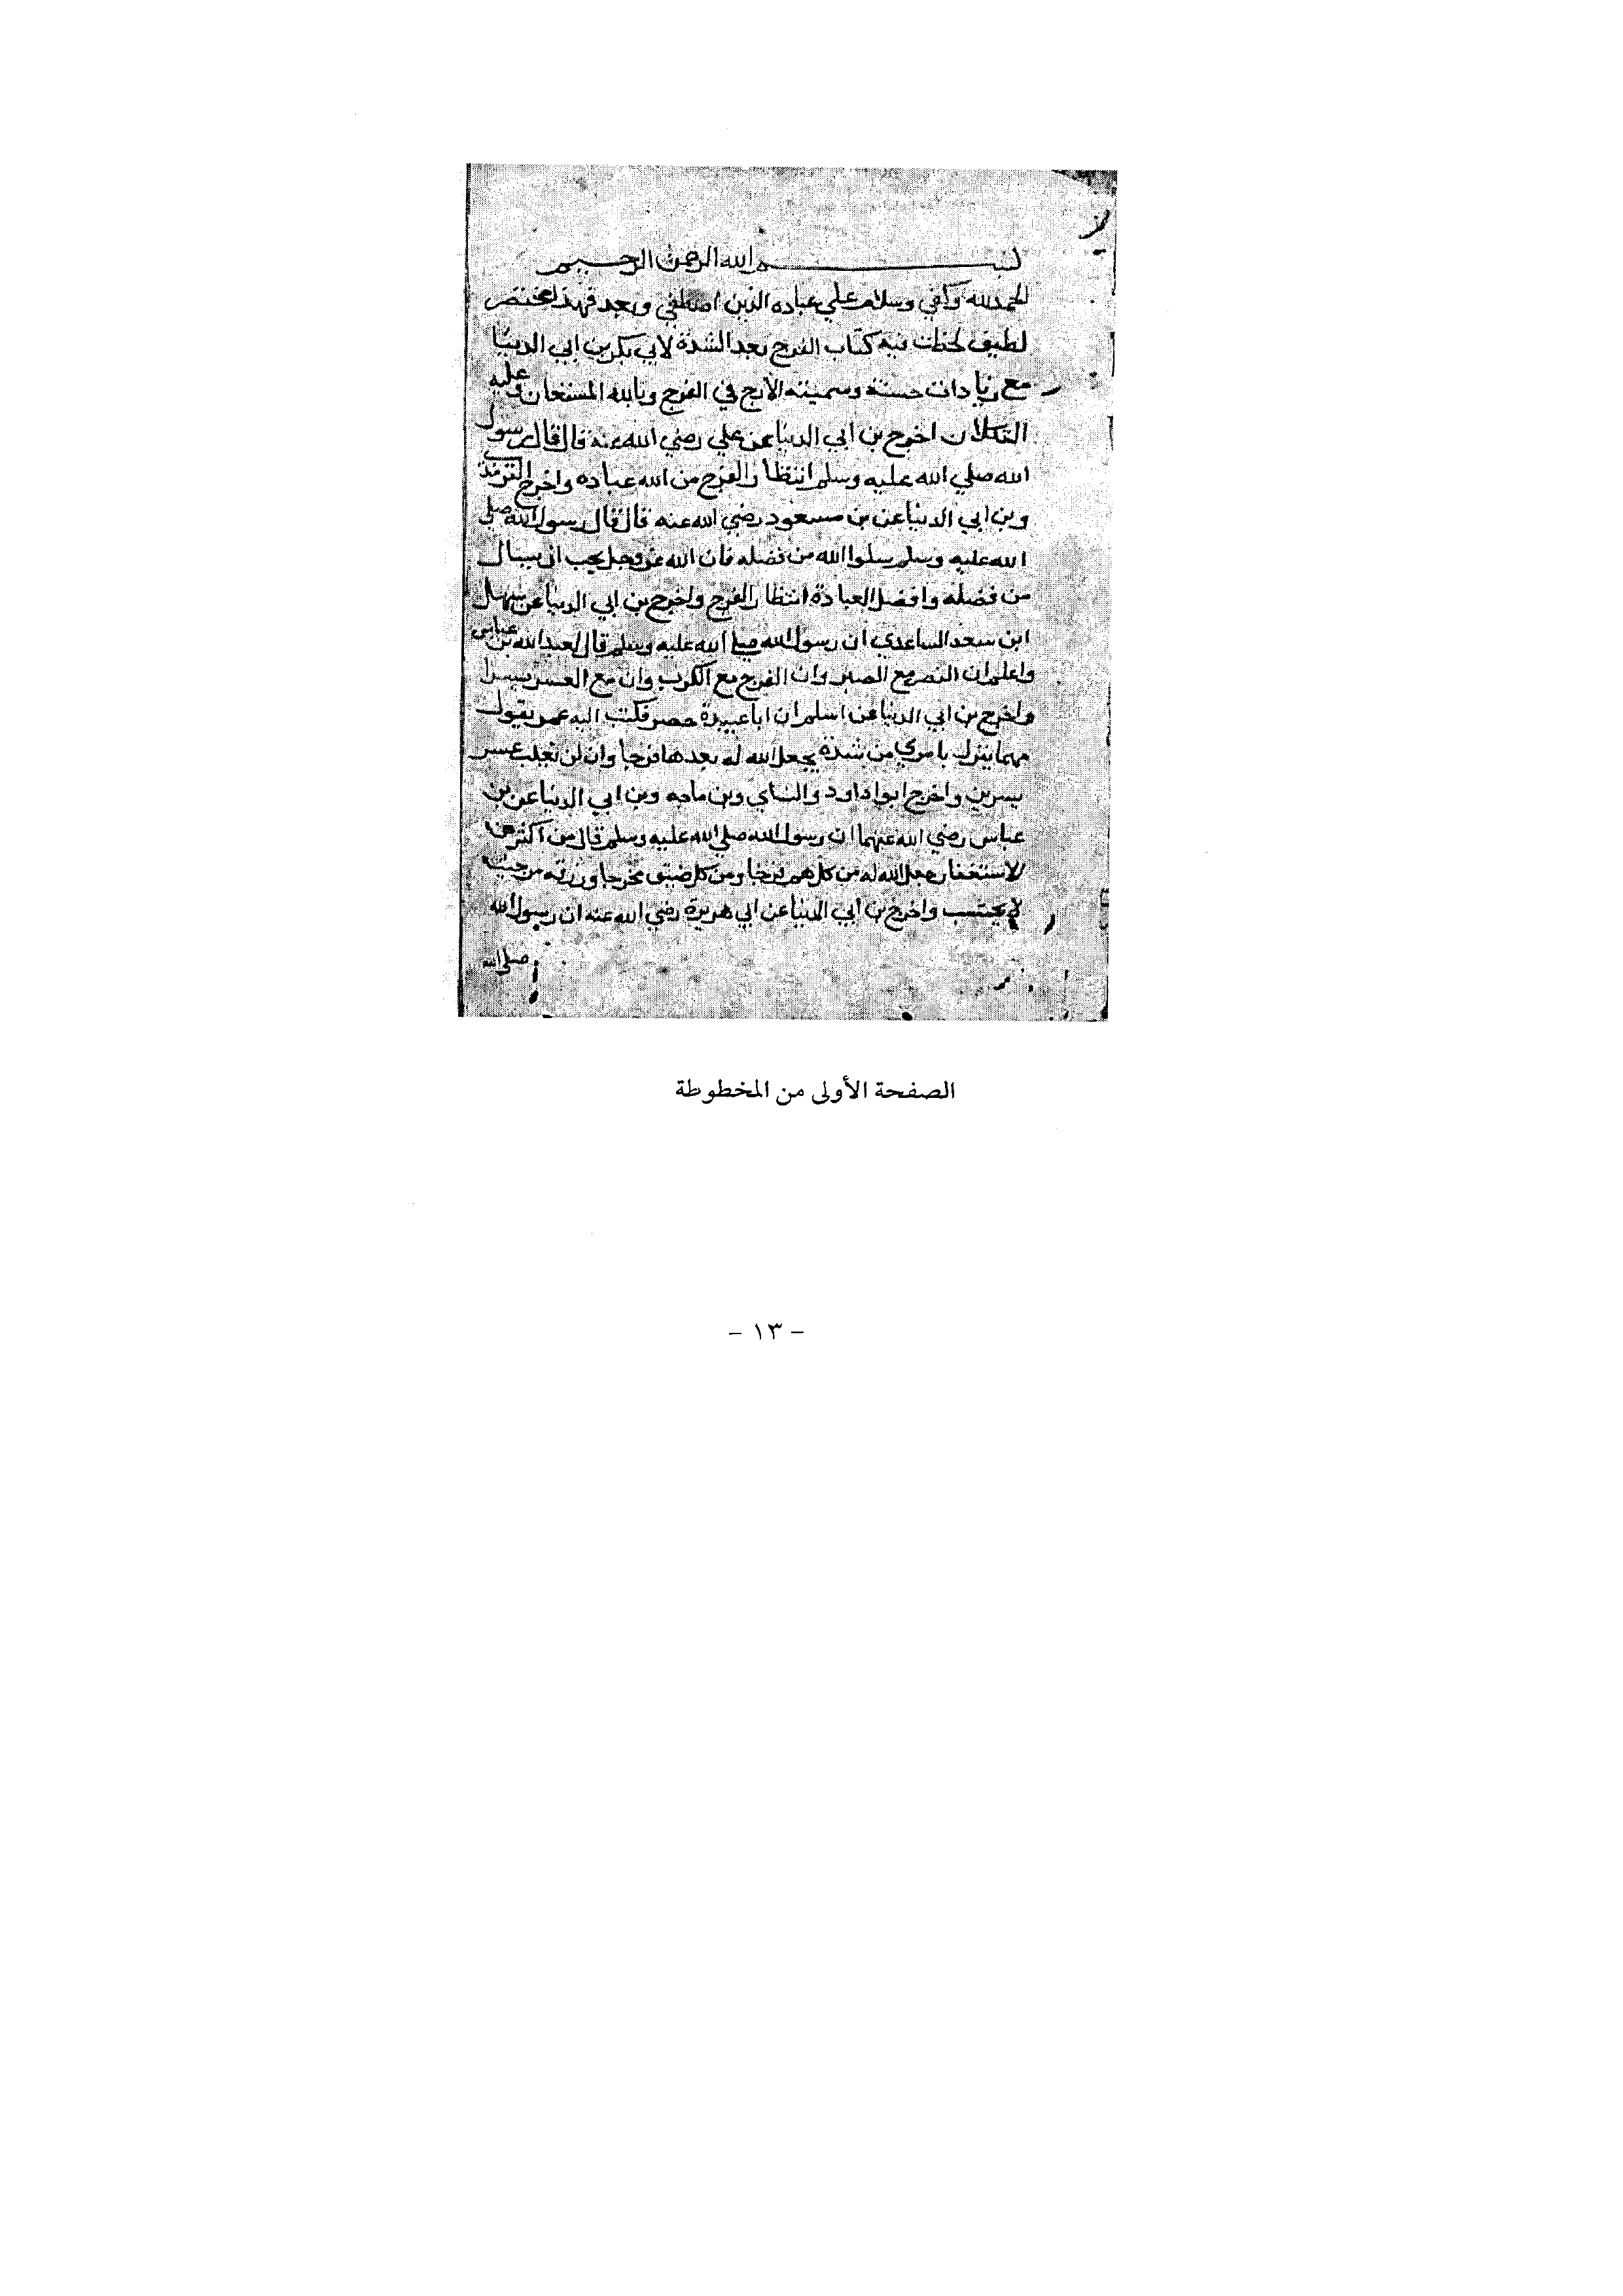 بسم الله الرحمن الرحيم
الحمد لله وكفي وسلام علي عباده الذين اصطفي وبعد فهذا مختصر
لطيف لخصت فيه كتاب الفرج بعد الشدة لابي بكر بن ابي الدنيا
مع زيادات حسنة وسميته الأرج في الفرج وبالله المستعان وعليه
التكلان اخرج بن ابي الدنيا عن علي رضي الله عنه قال قال رسول
الله صلي الله عليه وسلم انتظار الفرج من الله عباده واخرج الترمذي
وبن ابي الدنيا عن بن مسعود رضي الله عنه قال قال رسول الله صلي
الله عليه وسلم سلوا الله من فضله فان الله عز وجل يحب ان يسال
من فضله وافضل العبادة انتظار الفرج واخرج بن ابي الدنيا عن سهل
ابن سعد الساعدي ان رسول الله صلي الله عليه وسلم قال لعبد الله بن عباس
واعلم ان النصر مع الصبر وان الفرج مع الكرب وان مع العسر يسرا
واخرج بن ابي الدنيا عن اسلم ان ابا عبيدة حصر فكتب اليه عمر يقول
مهما ينزل بامري من شدة يجعل الله له بعدها فرجا وان لن تغلب عسر
يسرين واخرج ابوا داود والنساي وبن ماجه وبن ابي الدنيا عن بن
عباس رضي الله عنهما ان رسول الله صلي الله عليه وسلم قال من اكثر من
الاستغفار جعل الله له من كل هم فرجا ومن كل ضيق مخرجا ورزقه من حيث
لا يحتسب واخرج بن ابي الدنيا عن ابي هريرة رضي الله عنه ان رسول الله
صلي الله
الصفحة الأولى من المخطوطة
- ١٣ -